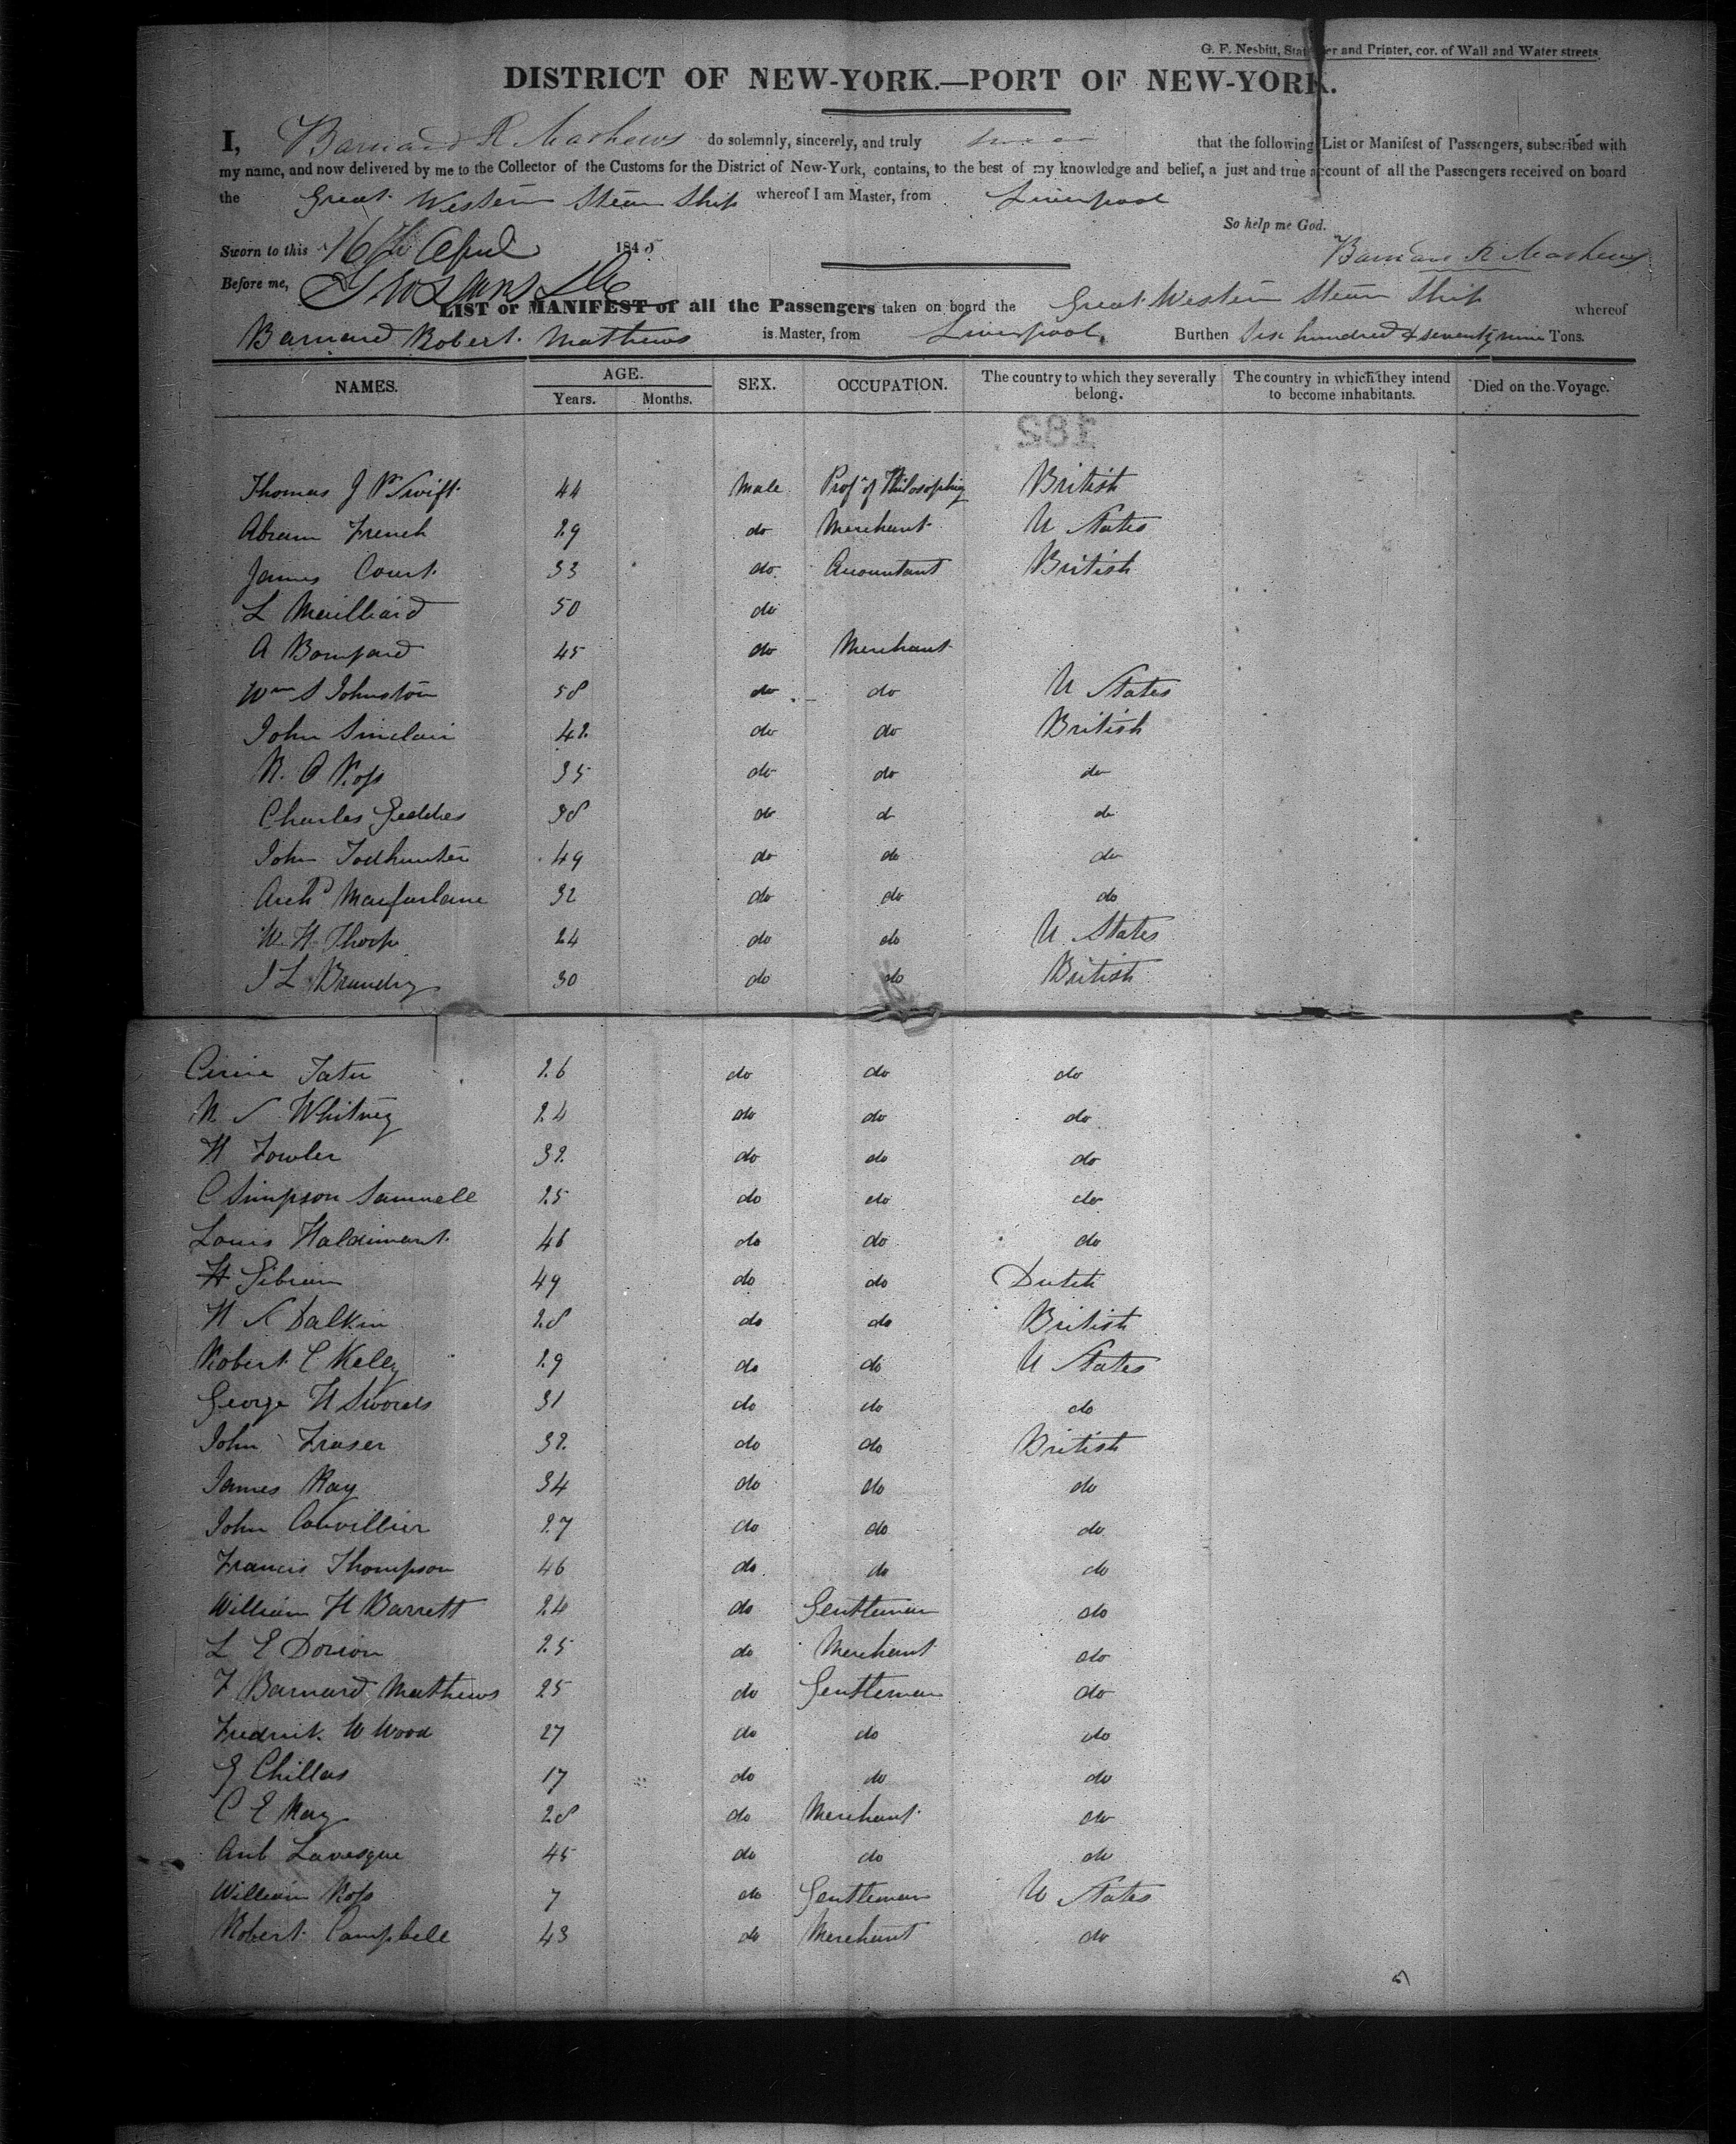 G. F. Nesbitt, Stationer and Printer, cor. of Wall and Water streets
DISTRICT OF NEW-YORK.—PORT OF NEW-YORK.
I, Barnard R Mathews do solemnly, sincerely, and truly swear that the following List or Manifest of Passengers, subscribed with
my name, and now delivered by me to the Collector of the Customs for the District of New-York, contains, to the best of my knowledge and belief, a just and true account of all the Passengers received on board
the Great Western Steam Ship whereof I am Master, from Liverpool
So help me God.
Sworn to this 16th April 1845 Barnard R Mathews
Before me,
LIST or MANIFEST of all the Passengers taken on board the Great Western Steam Ship whereof
Barnard Robert Mathews is Master, from Liverpool, Burthen Six hundred & seventy nine Tons.
NAMES. AGE. Years. Months. SEX. OCCUPATION. The country to which they severally belong. The country in which they intend to become inhabitants. Died on the Voyage.
182
Thomas J P Swift 44 Male Prof of Philosophy British
Abram French 29 do Merchant U States
James Court 33 do Accountant British
L Meilliard 50 do
A Bompard 45 do Merchant
Wm S Johnston 58 do do U States
John Sinclair 42 do do British
R. B Ross 35 do do do
Charles Geddes 38 do d do
John Todhunter 49 do do do
Archd Macfarlane 32 do do do
W. H. Thorp 24 do do U States
J L Brandry 30 do do British
Tatu 26 do do do
N S Whitney 24 do do do
H Fowler 32 do do do
C Simpson Samuell 25 do do do
Louis Haldimant 46 do do do
H Gibian 49 do do Dutch
H S Dalkin 28 do do British
Robert C Keley 29 do do U States
George H Swords 31 do do do
John Fraser 32 do do British
James Kay 34 do do do
John Couvillier 27 do do do
Francis Thompson 46 do do do
William H Barrett 24 do Gentleman do
L E Dorion 25 do Merchant do
F Barnard Mathews 25 do Gentleman do
Fredrick W Wood 27 do do do
J Chillas 17 do do do
C E Kay 28 do Merchant do
Ant Lavesque 45 do do do
William Ross 7 do Gentleman U States
Robert Campbell 43 do Merchant do